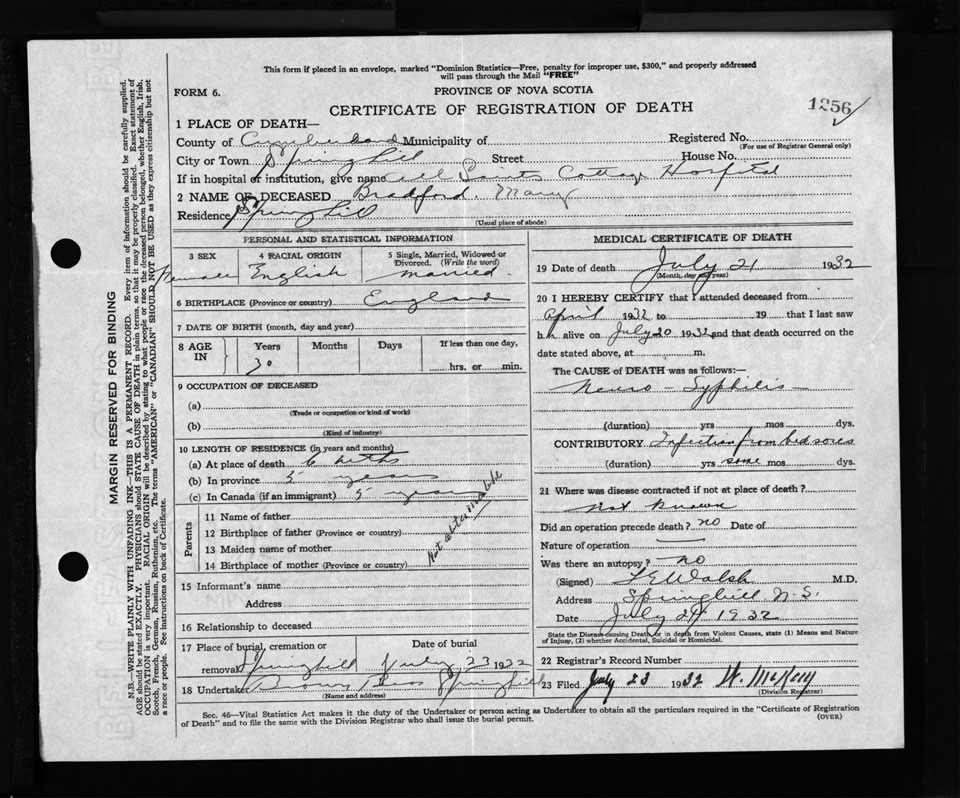 This form if placed in an envelope, marked "Dominion Statistics—Free, penalty for improper use, $300," and properly addressed
will pass through the Mail "FREE"
FORM 6.
PROVINCE OF NOVA SCOTIA
CERTIFICATE OF REGISTRATION OF DEATH
1256
1 PLACE OF DEATH—
County of Cumberland Municipality of
Registered No.
(For use of Registrar General only)
City or Town Springhill Street House No.
If in hospital or institution, give name All Saints Cottage Hospital
2 NAME OF DECEASED Bradford, Mary
Residence Springhill
(Usual place of abode)
PERSONAL AND STATISTICAL INFORMATION
3 SEX 4 RACIAL ORIGIN 5 Single, Married, Widowed or
Divorced. (Write the word)
Female English Married
6 BIRTHPLACE (Province or country) England
7 DATE OF BIRTH (month, day and year)
8 AGE IN Years Months Days If less than one day,
30 hrs. or min.
9 OCCUPATION OF DECEASED
(a)
(Trade or occupation or kind of work)
(b)
(Kind of industry)
10 LENGTH OF RESIDENCE (in years and months)
(a) At place of death 6 mths
(b) In province 5 years
(c) In Canada (if an immigrant) 5 years
Parents
11 Name of father
12 Birthplace of father (Province or country)
13 Maiden name of mother
14 Birthplace of mother (Province or country)
Not obtainable
15 Informant's name
Address
16 Relationship to deceased
17 Place of burial, cremation or Date of burial
removal Springhill July 23 1932
18 Undertaker Brown Bros Springhill
(Name and address)
MEDICAL CERTIFICATE OF DEATH
19 Date of death July 21 1932
(Month, day and year)
20 I HEREBY CERTIFY that I attended deceased from
April 1932 to 19 that I last saw
h alive on July 20 1932 and that death occurred on the
date stated above, at m.
The CAUSE of DEATH was as follows:—
Neuro - Syphilis
(duration) yrs mos dys.
CONTRIBUTORY Infection from bedsores
(duration) yrs some mos dys.
21 Where was disease contracted if not at place of death?
Not known
Did an operation precede death? no Date of
Nature of operation
Was there an autopsy? no
(Signed) Walsh M.D.
Address Springhill N.S.
Date July 1932
State the Disease causing Death, or in death from Violent Causes, state (1) Means and Nature
of Injury, (2) whether Accidental, Suicidal or Homicidal.
22 Registrar's Record Number
23 Filed July 23 1932
(Division Registrar)
Sec. 46—Vital Statistics Act makes it the duty of the Undertaker or person acting as Undertaker to obtain all the particulars required in the "Certificate of Registration
of Death" and to file the same with the Division Registrar who shall issue the burial permit.
(OVER)
MARGIN RESERVED FOR BINDING
N.B. WRITE PLAINLY WITH UNFADING INK—THIS IS A PERMANENT RECORD. Every item of information should be carefully supplied.
AGE should be stated EXACTLY. PHYSICIANS should STATE CAUSE OF DEATH in plain terms, so that it may be properly classified. Exact statement of
OCCUPATION is very important. RACIAL ORIGIN will be described by stating to what people or race the deceased person belonged, whether English, Irish,
Scotch, French, German, Russian, Ruthenian, etc. The terms "AMERICAN" or "CANADIAN" SHOULD NOT BE USED as they express citizenship but not
a race or people. See instructions on back of Certificate.